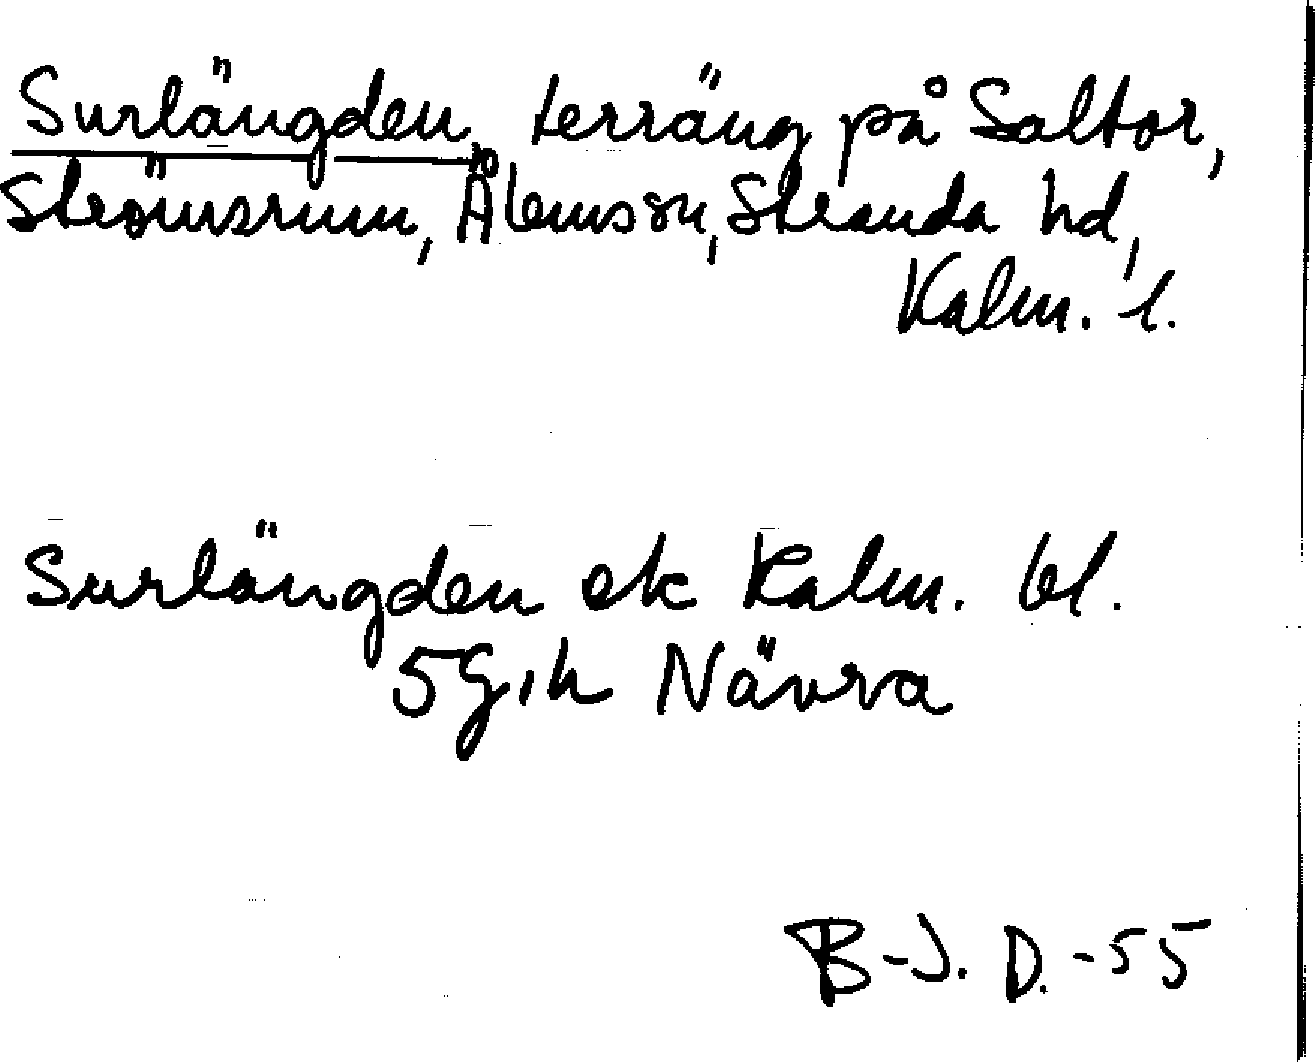 Surlängden, terräng på Saltor,
Strömsrum, Ålems sn, Stranda hd,
Kalm. l.
Surlängden ek Kalm. bl.
5G,h Nävra
B-J. D. -55